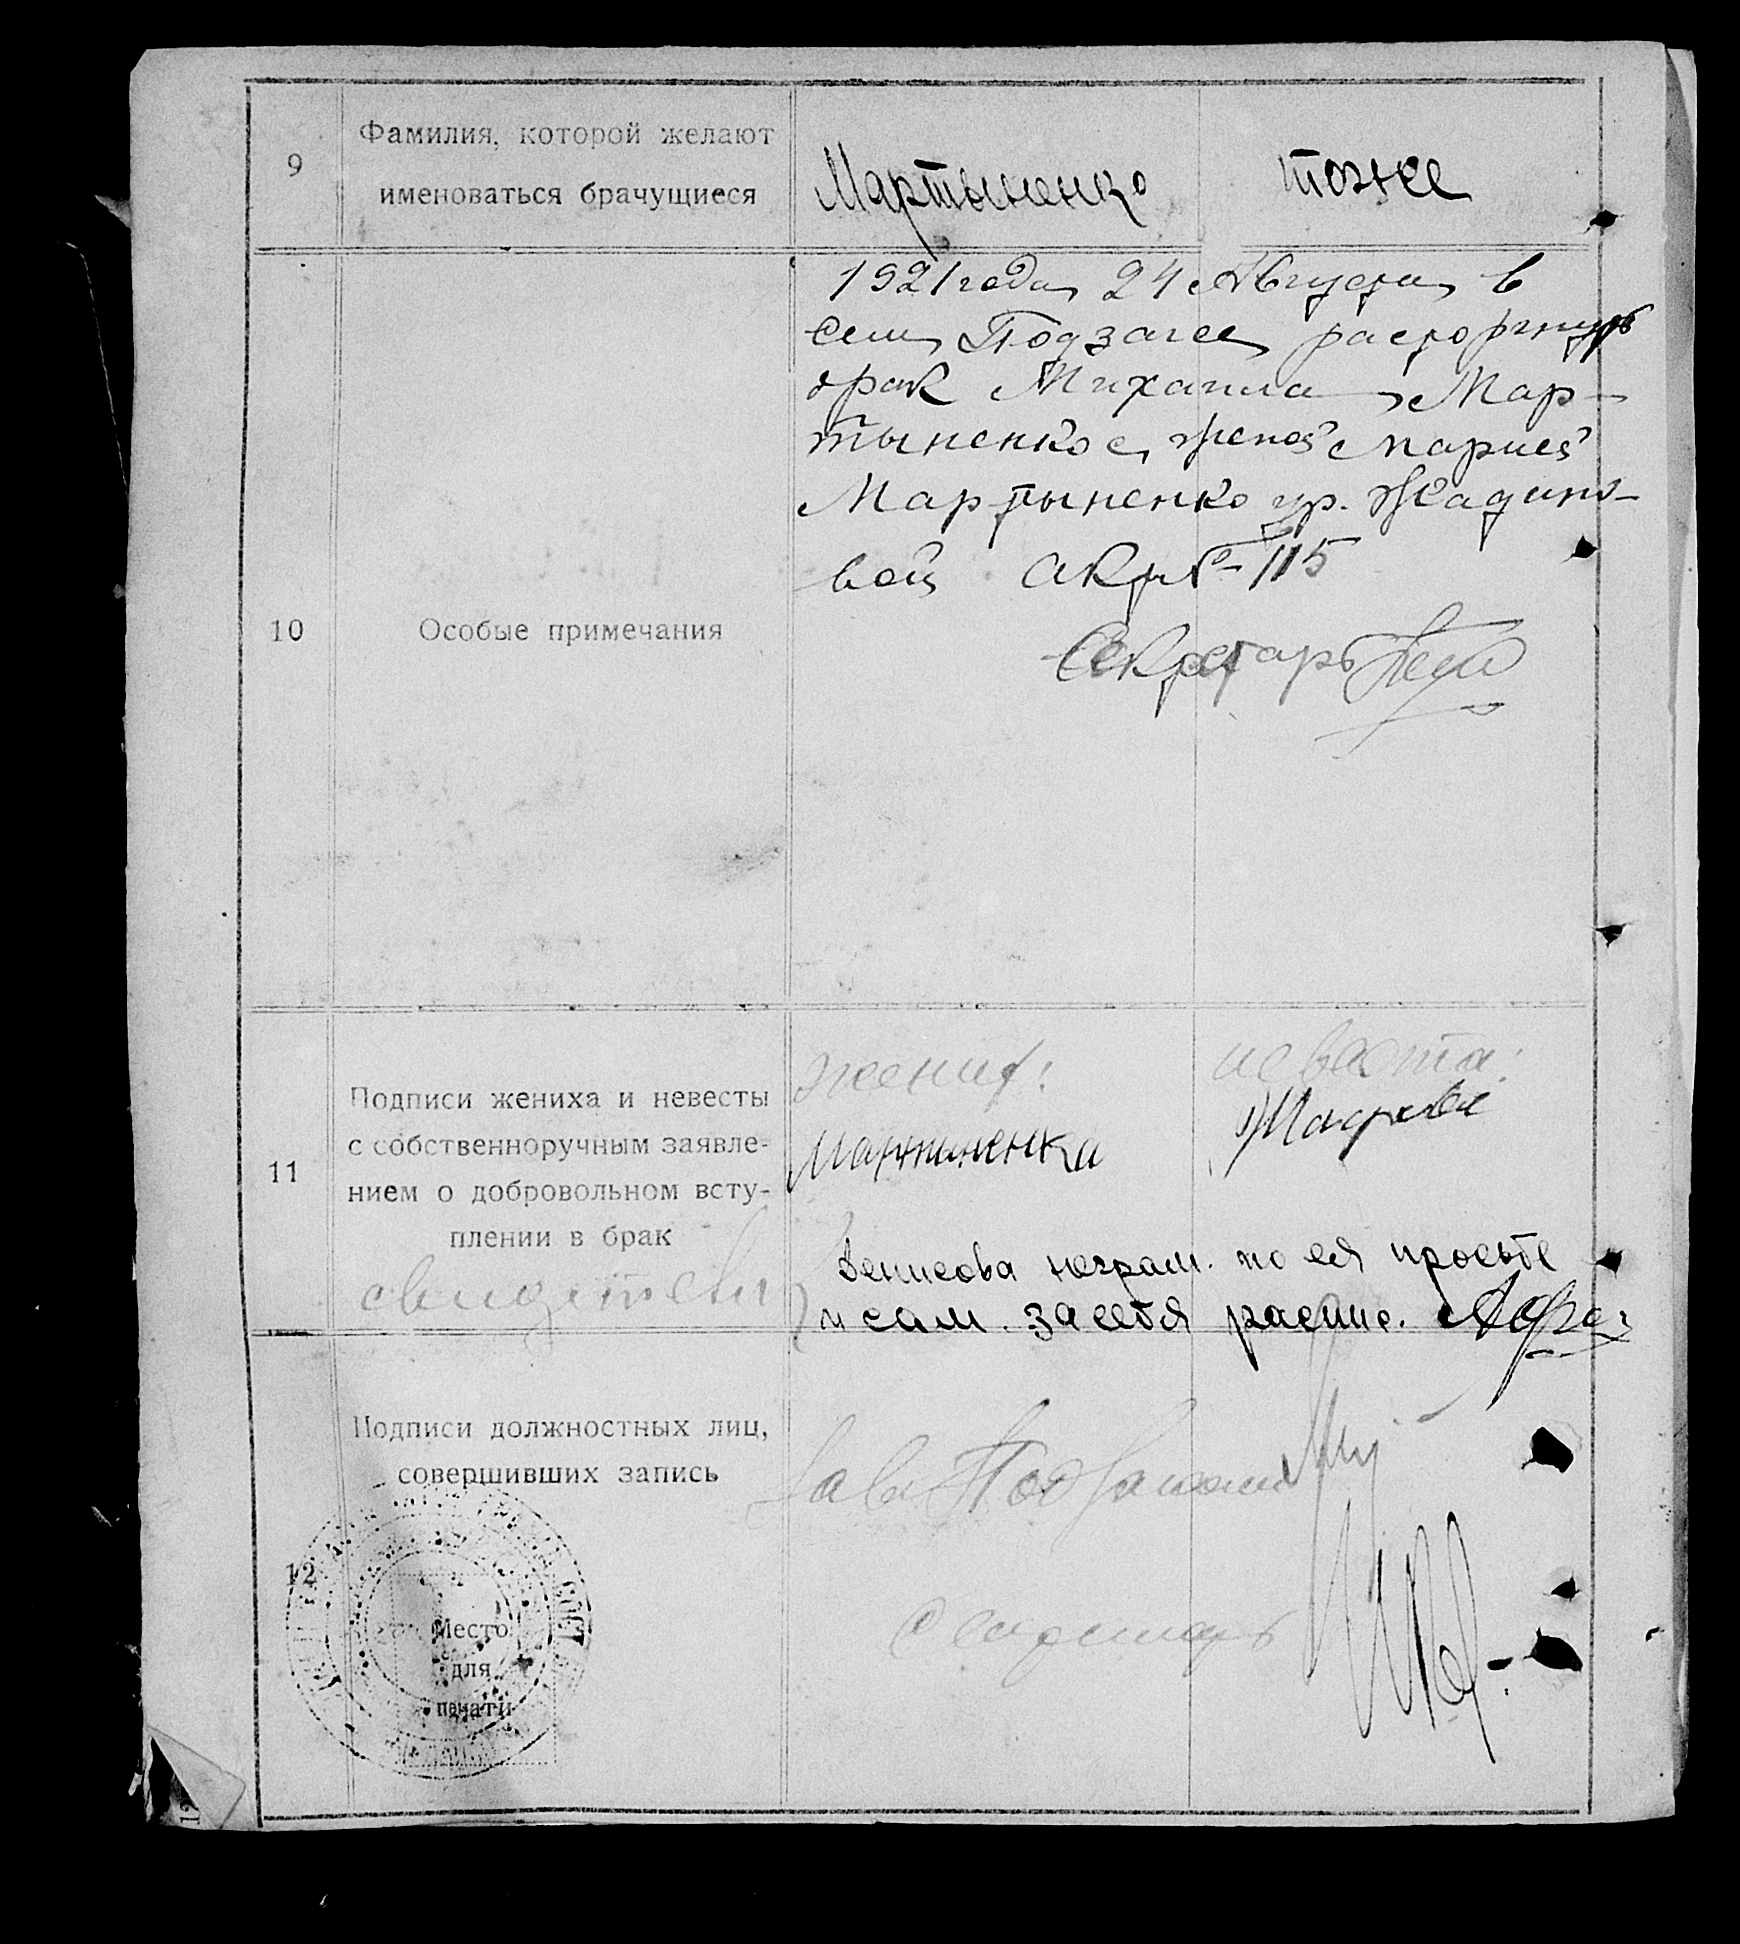 9
Фамилия, которой желают
именоваться брачущиеся
Мартыненко
тоже
10
Особые примечания
1921 года 24 Августа в
сем Подзагсе расторгнут
брак Михаила Мар-
тыненко с женой Марией
Мартыненко гр. Жадино-
вой акт № 115
Секретарь
11
Подписи жениха и невесты
с собственноручным заявле-
нием о добровольном всту-
плении в брак
свидетели
жених:
невеста:
Мартиненка
Денисова неграм. по ея просьбе
и сам. за себя распис.
12
Подписи должностных лиц,
совершивших запись
Место
для
печати
Зав. Подзагсом
Секретарь